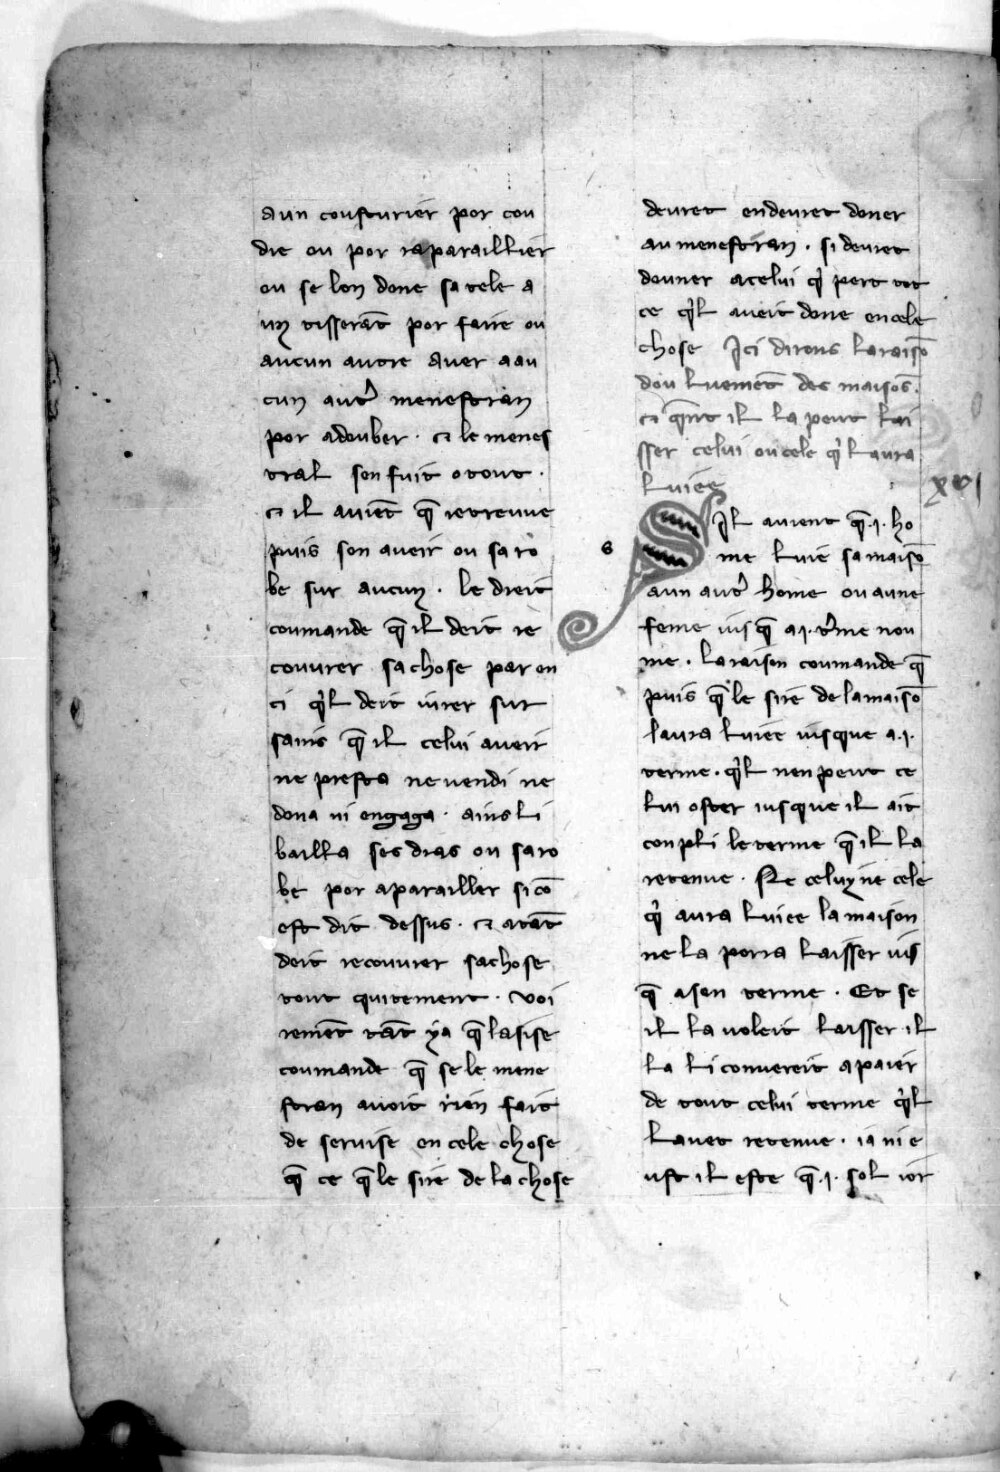 aun cousturier por cou
dre ou por raparaillier
ou se lon done sa tele a
un tisserãt por faire ou
aucun autre auer a au
cun autͥ menestran
por adouber · ⁊ le menes
tral sen fuit o tout ·
⁊ il auiẽt q̃ ie treuue
puis son aueir ou sa ro
be sur aucun · le dreit
coumande q̃ il deit re
couurer sa chose par en
ci qͥl deit iurer sur
sains q̃ il celui aueir
ne presta ne uendi ne
dona ni engaga · ains li
bailla ses dras ou sa ro
be por aparailler si cõ
est dit dessus · ⁊ atãt
deit recouurer sa chose
tout quitement · Voi
rement tãt ya q̃ lasise
coumande q̃ se le mene
stran auoit rien fait
de seruise en cele chose
q̃ ce q̃ le sire de la chose
deuret en deuret doner
au menestran · si deuret
douner a celui qͥ pert tot
ce qͥl aueit done en cele
chose Ici dirons la raisõ
dou luemẽt des maisõs ·
⁊ q̃nt il la peut lai
sser celui ou cele qͥ laura
luiee
xvi
s
SIl auient q̃ ·i· ho
me luie sa maisõ
a un autͥ home ou a une
feme iusq̃ a ·i· tͥme nou
me · la raison coumande q̃
puis q̃ le sire de la maisõ
laura luiee iusque a ·i·
terme · qͥl nen peut ce
lui oster iusque il ait
conpli le terme q̃ il la
retenue · Ne celuy ne cele
qͥ aura luiee la maison
ne la porra laisser ius
q̃ a son terme · Et se
il la voleit laisser il
la li conuereit a paier
de tout celui terme qͥl
lauet retenue · ia ni e
ust il este q̃ ·i· sol ior